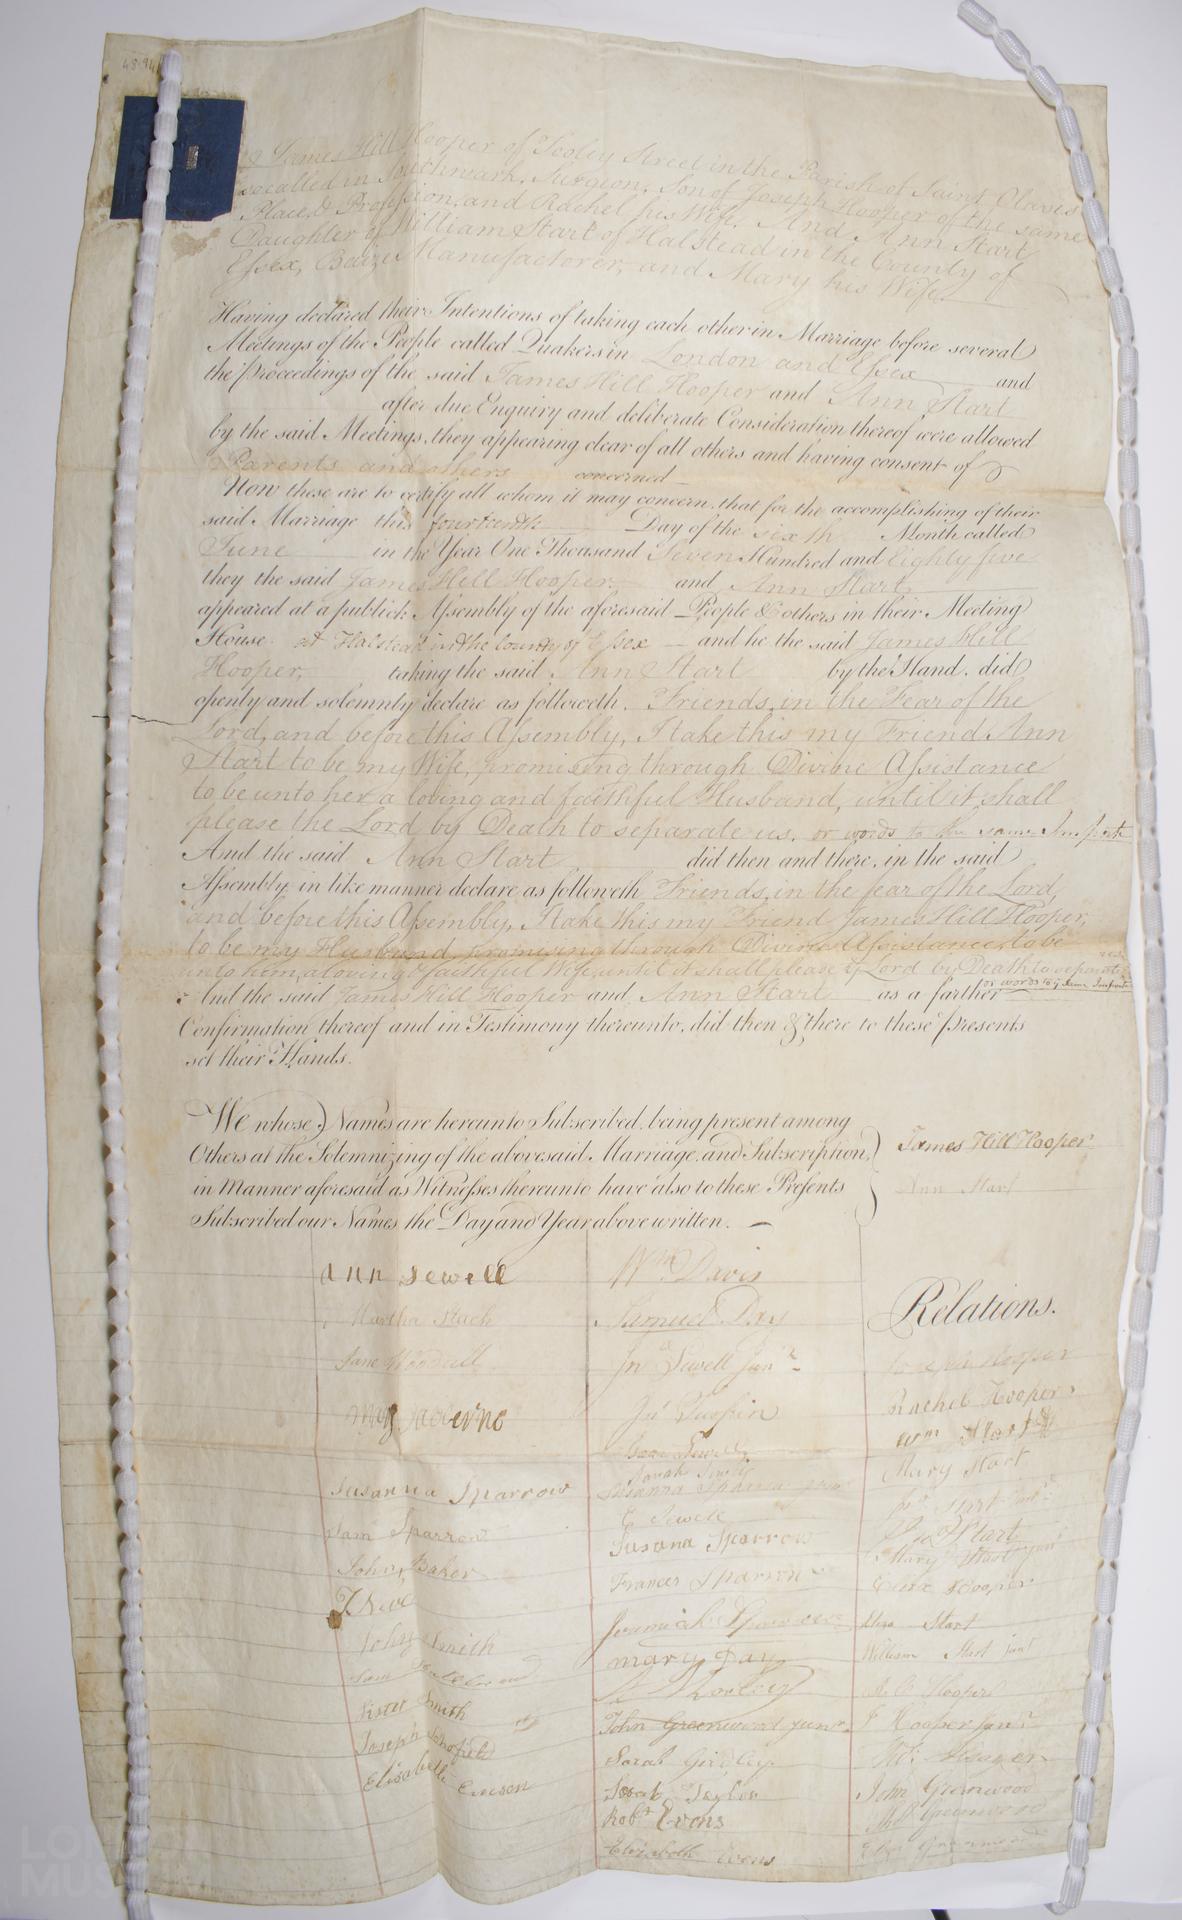 48.94
James Hill Hooper of Tooley Street in the Parish of Saint Olaves
so called in Southwark, Surgeon, Son of Joseph Hooper of the same
Place, & Profession, and Rachel his Wife. And Ann Start
Daughter of William Start of Halstead in the County of
Essex, Baize Manufactorer, and Mary his Wife.
Having declared their Intentions of taking each other in Marriage before several
Meetings of the People called Quakers in London and Essex and
the Proceedings of the said James Hill Hooper and Ann Start
after due Enquiry and deliberate Consideration thereof were allowed
by the said Meetings, they appearing clear of all others and having consent of
Parents and others concerned
Now these are to certify all whom it may concern, that for the accomplishing of their
said Marriage this fourteenth Day of the sixth Month called
June in the Year One Thousand Seven Hundred and Eighty five
they the said James Hill Hooper and Ann Start
appeared at a publick Assembly of the aforesaid People & others in their Meeting
House at Halstead in the County of Essex and he the said James Hill
Hooper, taking the said Ann Start by the Hand, did
openly and solemnly declare as followeth. Friends, in the Fear of the
Lord, and before this Assembly, I take this my Friend Ann
Start to be my Wife, promising through Divine Assistance
to be unto her a loving and faithful Husband, until it shall
please the Lord by Death to separate us, or words to the same Import
And the said Ann Start did then and there, in the said
Assembly, in like manner declare as followeth Friends, in the fear of the Lord,
and before this Assembly, I take this my Friend James Hill Hooper,
to be my Husband, promising through Divine Assistance, to be
unto him, a loving & faithful Wife, until it shall please ye Lord by Death to separate us,
or words to ye same Import
And the said James Hill Hooper and Ann Start as a farther
Confirmation thereof and in Testimony thereunto, did then & there to these Presents
set their Hands.
We whose Names are hereunto Subscribed, being present among
Others at the Solemnizing of the abovesaid Marriage, and Subscription,
in Manner aforesaid as Witnesses thereunto have also to these Presents
Subscribed our Names the Day and Year above written.
James Hill Hooper
Ann Start
Ann Sewell
Martha Stach
Jane
May
Susanna Sparrow
Sam Sparrow
John Baker
John Smith
Sam
Smith
Joseph
Elizabeth
Wm Davis
Samuel Day
Jno Sewell Junr
Sewell
Sarah
Sparrow
E Sewell
Susana Sparrow
Frances Sparrow
Jeremiah
mary Day
John Greenwood Junr
Sarah
Sarah Taylor
Robt Evens
Elizabeth Evens
Relations.
Joseph Hooper
Rachel Hooper
Wm Start
Mary Start
Start Junr
Start
Mary Start Junr
Hooper
Start
William Start junr
Hooper
J Hooper Junr
John Greenwood
Greenwood
LONDON
MUSEUM